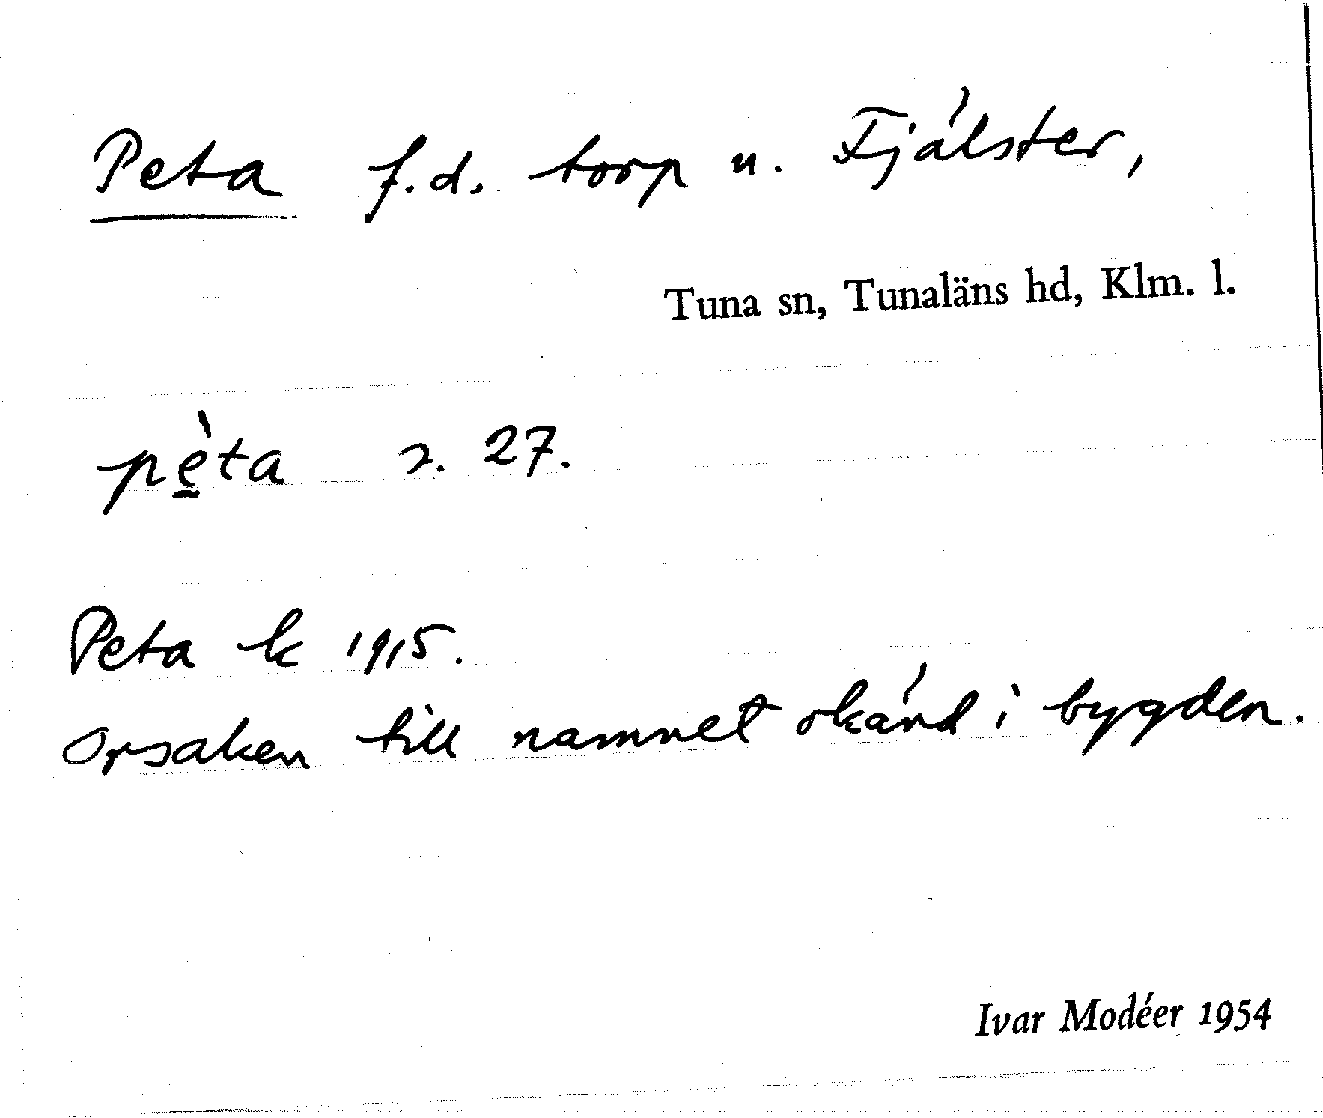 Peta f.d. torp u. Fjälster,
Tuna sn, Tunaläns hd, Klm. l.
pe̠̍ta s. 27.
Peta k 1915.
Orsaken till namnet okänd i bygden.
Ivar Modéer 1954